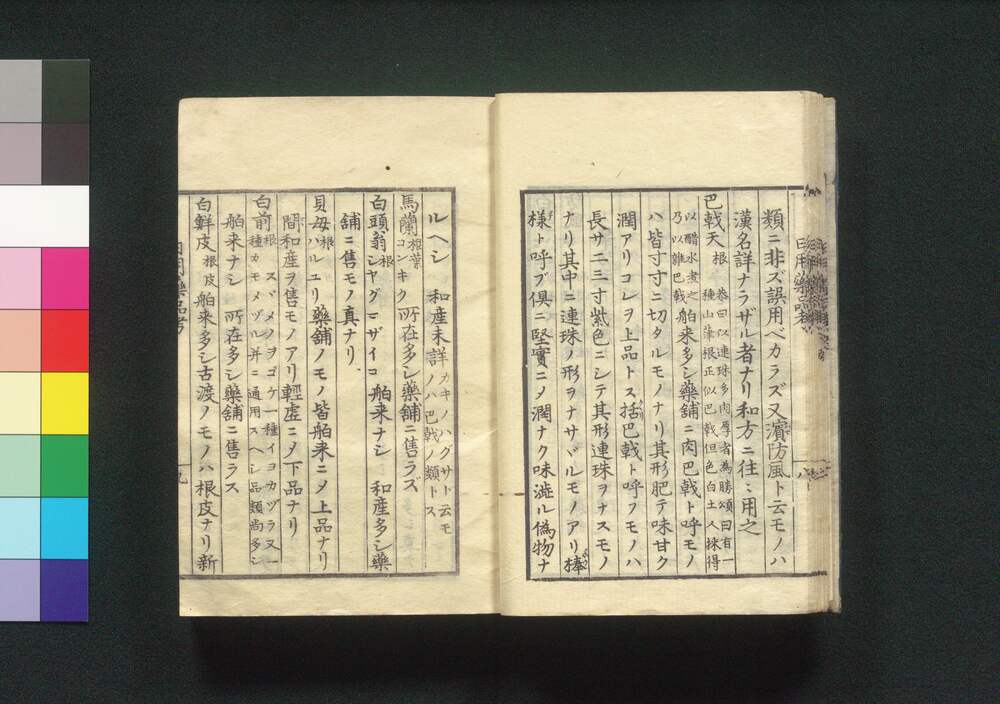 類ニ非ズ誤用ベカラズ又濵防風ト云モノハ
漢名詳ナラザル者ナリ和方ニ往〻用之
巴戟天 根 恭曰以連珠多肉厚者為勝頌曰有一
種山葎根正似巴戟但色白土人採得
以醋水煮之
乃以雜巴戟 舶来多シ藥舗ニ肉巴戟ト呼モノ
ハ皆寸寸ニ切タルモノナリ其形肥テ味甘ク
潤アリコレヲ上品トス括巴戟ト呼フモノハ
長サ二三寸紫色ニシテ其形連珠ヲナスモノ
ナリ其中ニ連珠ノ形ヲナサヾルモノアリ棒
様ト呼ブ倶ニ堅實ニメ潤ナク味澁ル偽物ナ
日用藥品考
八
ルヘシ 和産未詳 カキノハグサト云モ
ノハ巴戟ノ類トス
馬蘭 根葉
コンキク 所在多シ藥舗ニ售ラズ
白頭翁 根
シヤグマザイコ 舶来ナシ 和産多シ藥
舗ニ售モノ真ナリ
貝母 根
ハルユリ 藥舗ノモノ皆舶来ニメ上品ナリ
間和産ヲ售モノアリ輕虚ニメ下品ナリ
白前 根 スヾメノヲゴケ一種イヨカヅラ又一
種カモメヅル并ニ通用スヘシ品類尚多シ
舶来ナシ 所在多シ藥舗ニ售ラス
白鮮皮 根皮 舶来多シ古渡ノモノハ根皮ナリ新
日用藥品考
九